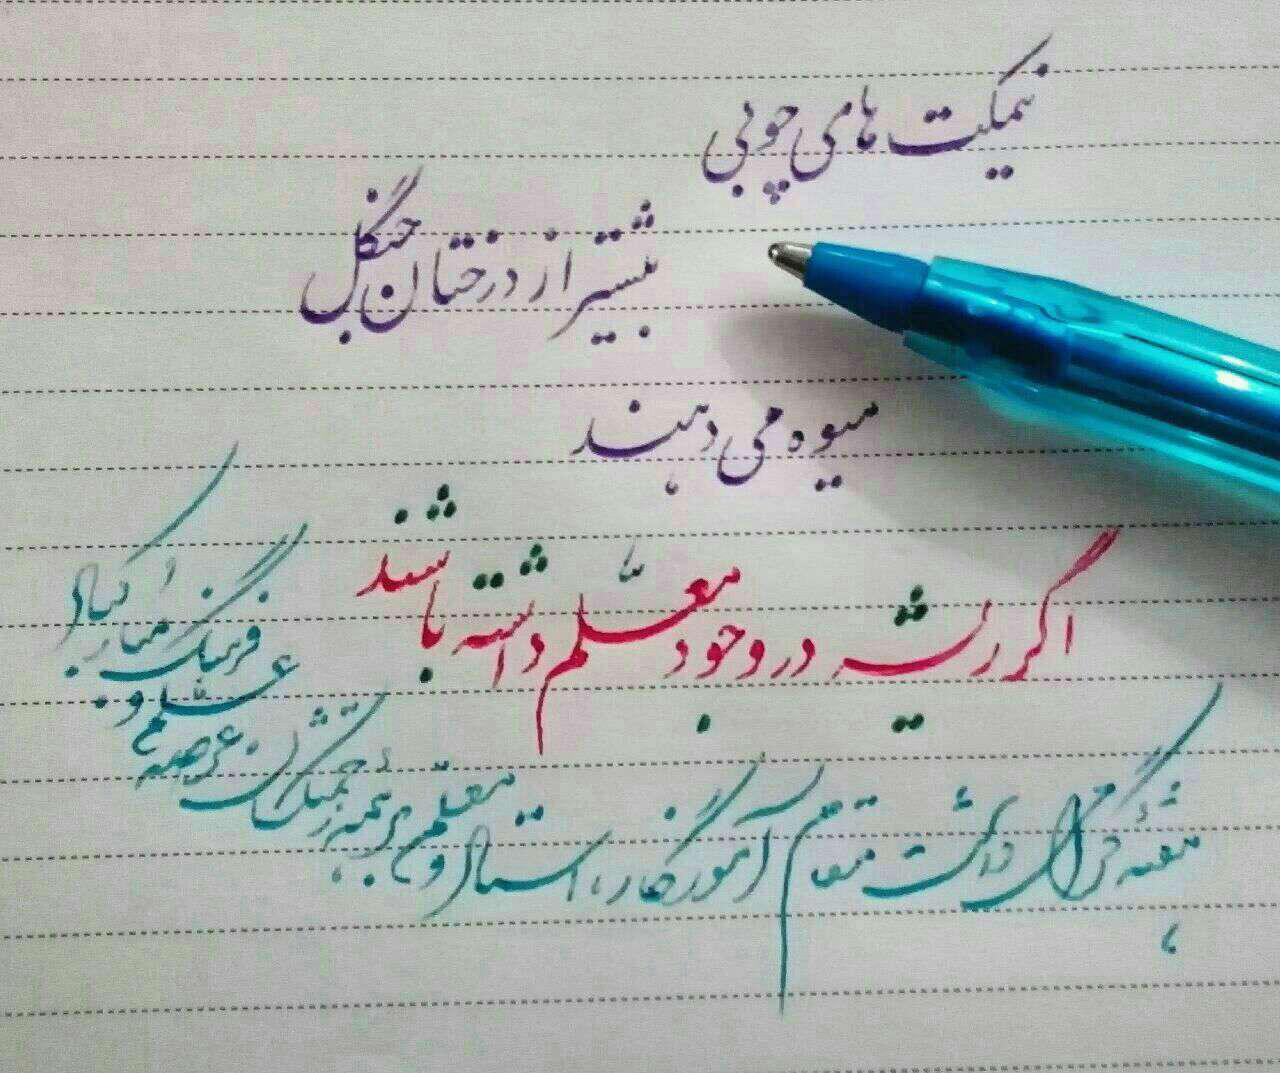 نیمکت های چوبی
بیشتر از درختان جنگل
میوه می دهند
اگر ریشه در وجود معلّم داشته باشند
هفتهٔ گرامی داشت مقام آموزگار، استاد و معلّم بر همهٔ زحمتکشان عرصه
علم و
فرهنگ مبارکباد